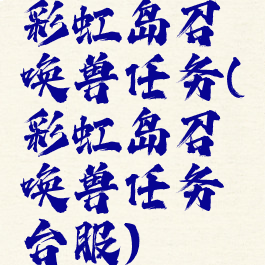 彩虹岛召
唤兽任务(
彩虹岛召
唤兽任务
台服)